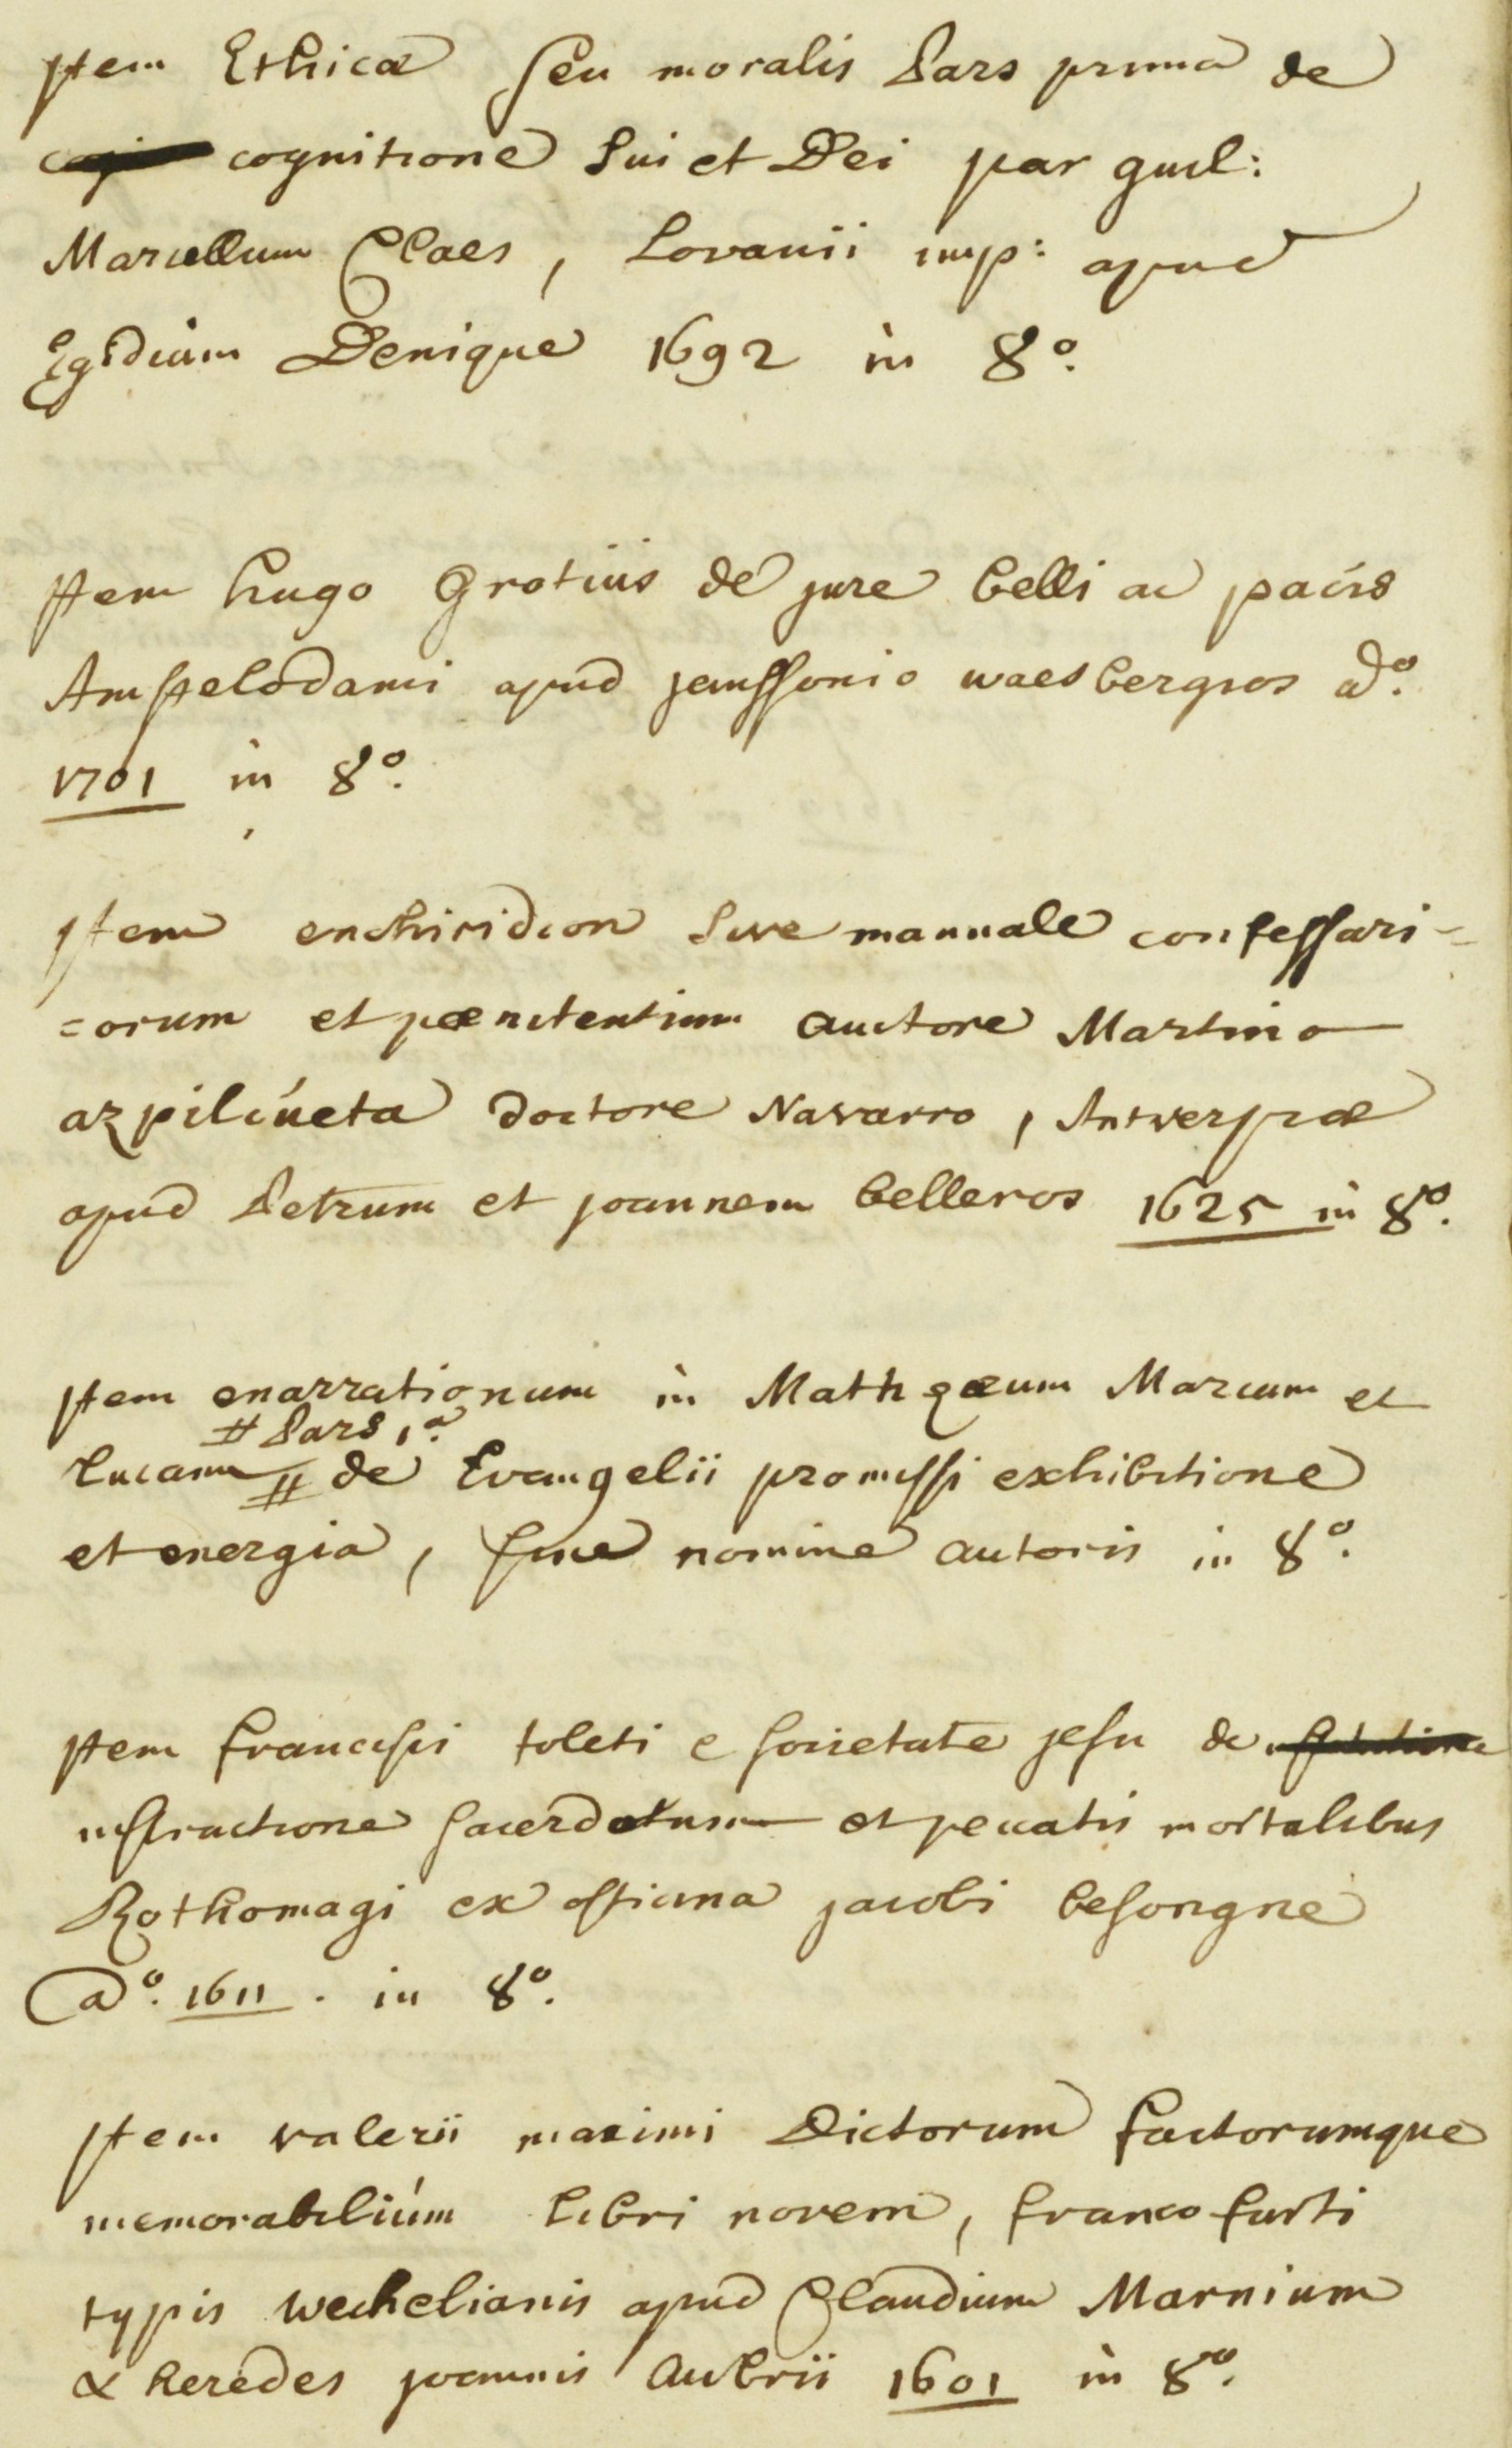 Item Ethicæ seu moralis Pars prima de
cognitione sui et Dei par guil:
Marcellum Claes, Lovanii imp: apud
Egidium Denique 1692 in 8º.
Item hugo Grotius de jure belli ac pacis
Amstelodami apud janssonio waesbergios aº.
1701 in 8º.
Item enchiridion sive manuale confessari=
=orum et pœnitentium auctore Martino
azpilcueta doctore Navarro, Antverpiæ
apud Petrum et joannem belleros 1625 in 8º.
Item enarrationum in Mathæum Marcum et
# Pars 1ª.
Lucam # de Evangelii promissi exhibitione
et energia, sine nomine autoris in 8º.
Item francisci toleti e societate jesu de
instructione sacerdotum et peccatis mortalibus
Rothomagi ex officina jacobi besongne
aº. 1611. in 8º.
Item valerii maximi Dictorum factorumque
memorabilium libri novem, francofurti
typis wechelianis apud Claudium Marnium
& heredes joannis Aubrii 1601 in 8º.